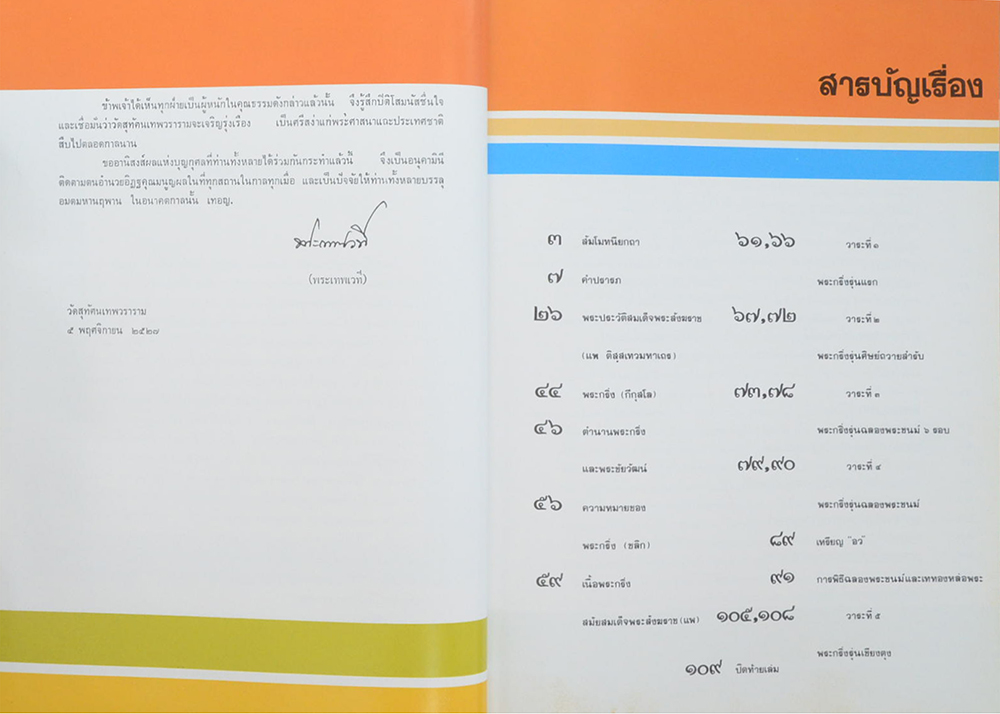 ข้าพเจ้าได้เห็นทุกฝ่ายเป็นผู้หนักในคุณธรรมดังกล่าวแล้วนั้น จึงรู้สึกปีติโสมนัสชื่นใจ
และเชื่อมั่นว่าวัดสุทัศนเทพวรารามจะเจริญรุ่งเรือง เป็นศรีสง่าแก่พระศาสนาและประเทศชาติ
สืบไปตลอดกาลนาน
ขออานิสงส์ผลแห่งบุญกุศลที่ท่านทั้งหลายได้ร่วมกันกระทำแล้วนี้ จึงเป็นอนุคามินี
ติดตามตนอำนวยอิฏฐคุณมนูญผลในที่ทุกสถานในกาลทุกเมื่อ และเป็นปัจจัยให้ท่านทั้งหลายบรรลุ
อมตมหานฤพาน ในอนาคตกาลนั้น เทอญ.
(พระเทพเวที)
วัดสุทัศนเทพวราราม
๕ พฤศจิกายน ๒๕๒๗
สารบัญเรื่อง
๓ สัมโมทนียกถา
๗ คำปรารภ
๒๖ พระประวัติสมเด็จพระสังฆราช
(แพ ติสฺสเทวมหาเถร)
๔๔ พระกริ่ง (กึกุสโล)
๔๖ ตำนานพระกริ่ง
และพระชัยวัฒน์
๕๖ ความหมายของ
พระกริ่ง (ขลิก)
๕๙ เนื้อพระกริ่ง
สมัยสมเด็จพระสังฆราช (แพ)
๖๑,๖๖ วาระที่ ๑
พระกริ่งรุ่นแรก
๖๗,๗๒ วาระที่ ๒
พระกริ่งรุ่นศิษย์ถวายสำรับ
๗๓,๗๘ วาระที่ ๓
พระกริ่งรุ่นฉลองพระชนม์ ๖ รอบ
๗๙,๙๐ วาระที่ ๔
พระกริ่งรุ่นฉลองพระชนม์
๘๙ เหรียญ "อว"
๙๑ การพิธีฉลองพระชนม์และเททองหล่อพระ
๑๐๕,๑๐๘ วาระที่ ๕
พระกริ่งรุ่นเชียงตุง
๑๐๙ ปิดท้ายเล่ม